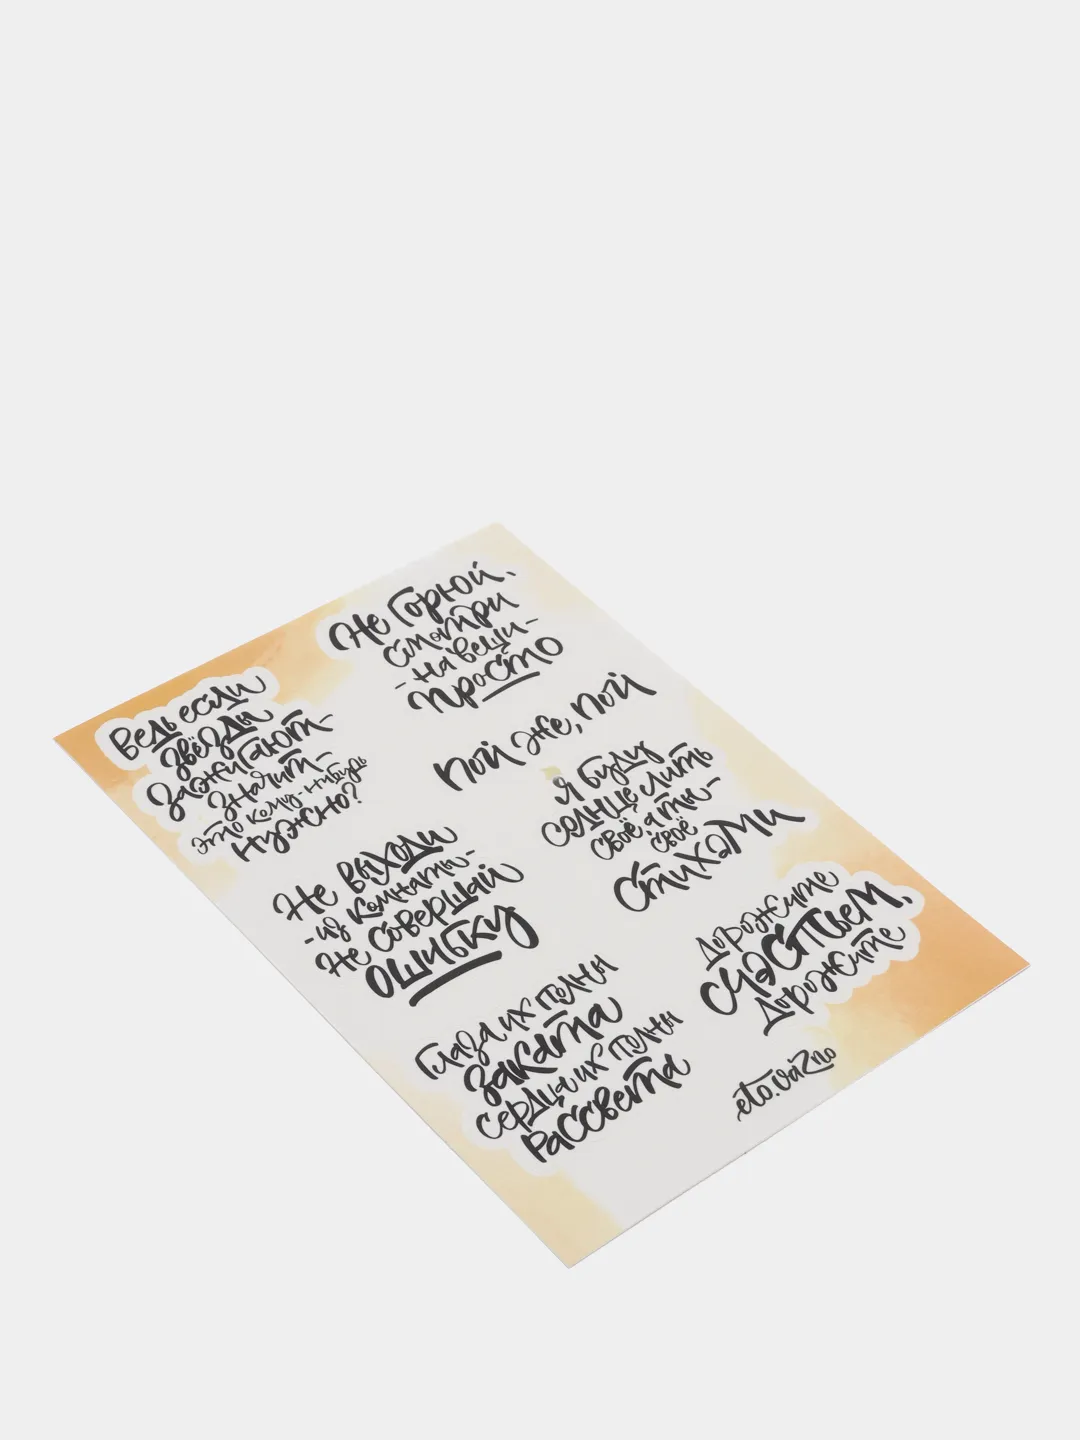 Не горюй,
смотри
-на вещи-
просто
Ведь если
звёзды
зажигают-
значит-
это кому-нибудь
нужно?
пой же, пой
я буду
солнце лить
своё, а ты-
своё
стихами
Не выходи
-из комнаты-
не совершай
ошибку
дорожите
счастьем,
дорожите
Глаза их полны
заката
сердца их полны
рассвета
eto.vazno